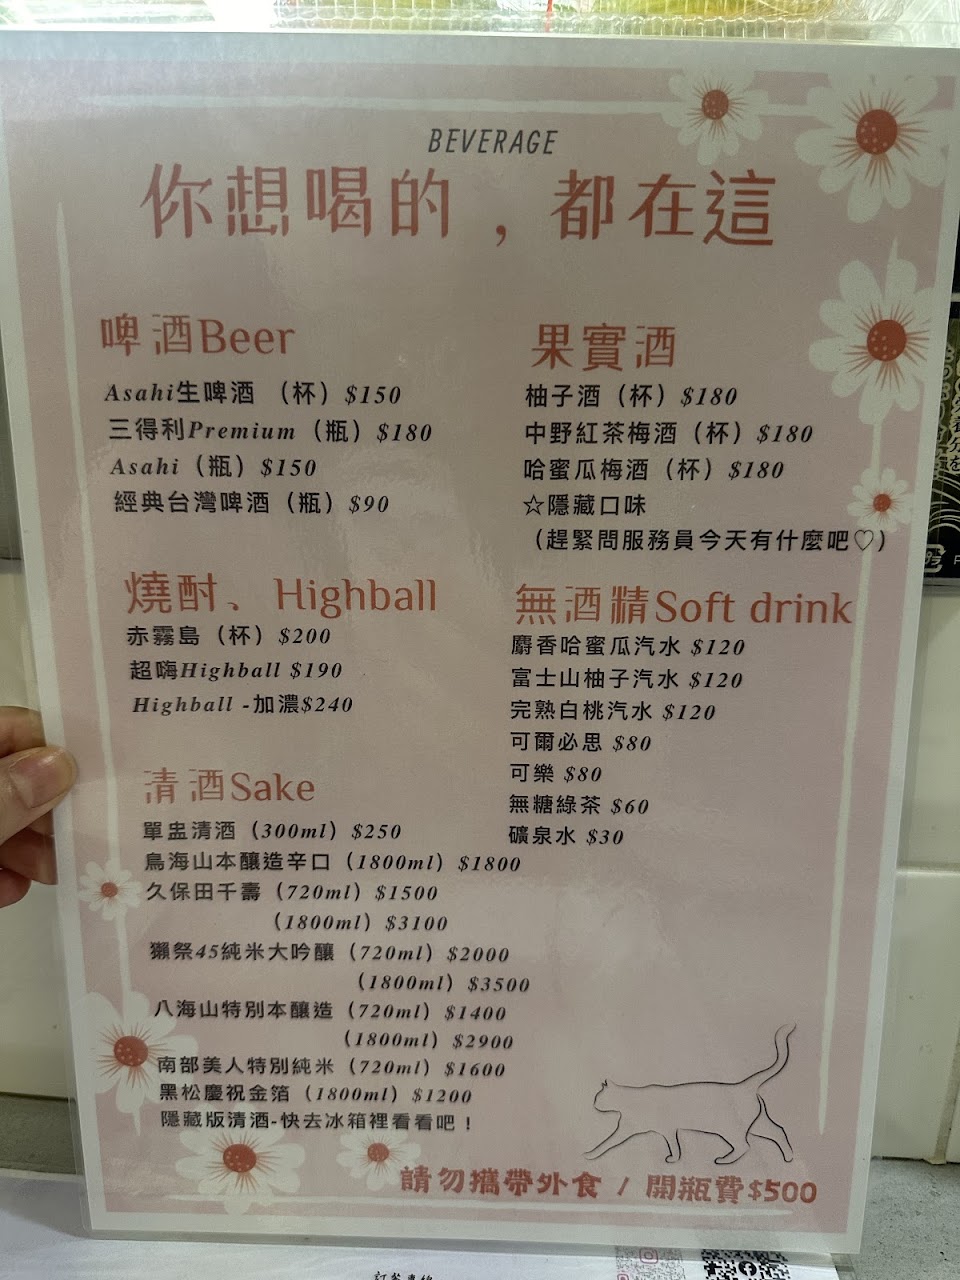 BEVERAGE
你想喝的，都在這
啤酒Beer
Asahi生啤酒 （杯）$150
三得利Premium（瓶）$180
Asahi（瓶）$150
經典台灣啤酒（瓶）$90
燒酎、Highball
赤霧島（杯）$200
超嗨Highball $190
Highball -加濃$240
清酒Sake
單盅清酒（300ml）$250
鳥海山本釀造辛口（1800ml）$1800
久保田千壽（720ml）$1500
（1800ml）$3100
獺祭45純米大吟釀（720ml）$2000
（1800ml）$3500
八海山特別本釀造（720ml）$1400
（1800ml）$2900
南部美人特別純米（720ml）$1600
黑松慶祝金箔（1800ml）$1200
隱藏版清酒-快去冰箱裡看看吧！
果實酒
柚子酒（杯）$180
中野紅茶梅酒（杯）$180
哈蜜瓜梅酒（杯）$180
☆隱藏口味
（趕緊問服務員今天有什麼吧♡）
無酒精Soft drink
麝香哈蜜瓜汽水 $120
富士山柚子汽水 $120
完熟白桃汽水 $120
可爾必思 $80
可樂 $80
無糖綠茶 $60
礦泉水 $30
請勿攜帶外食 / 開瓶費$500